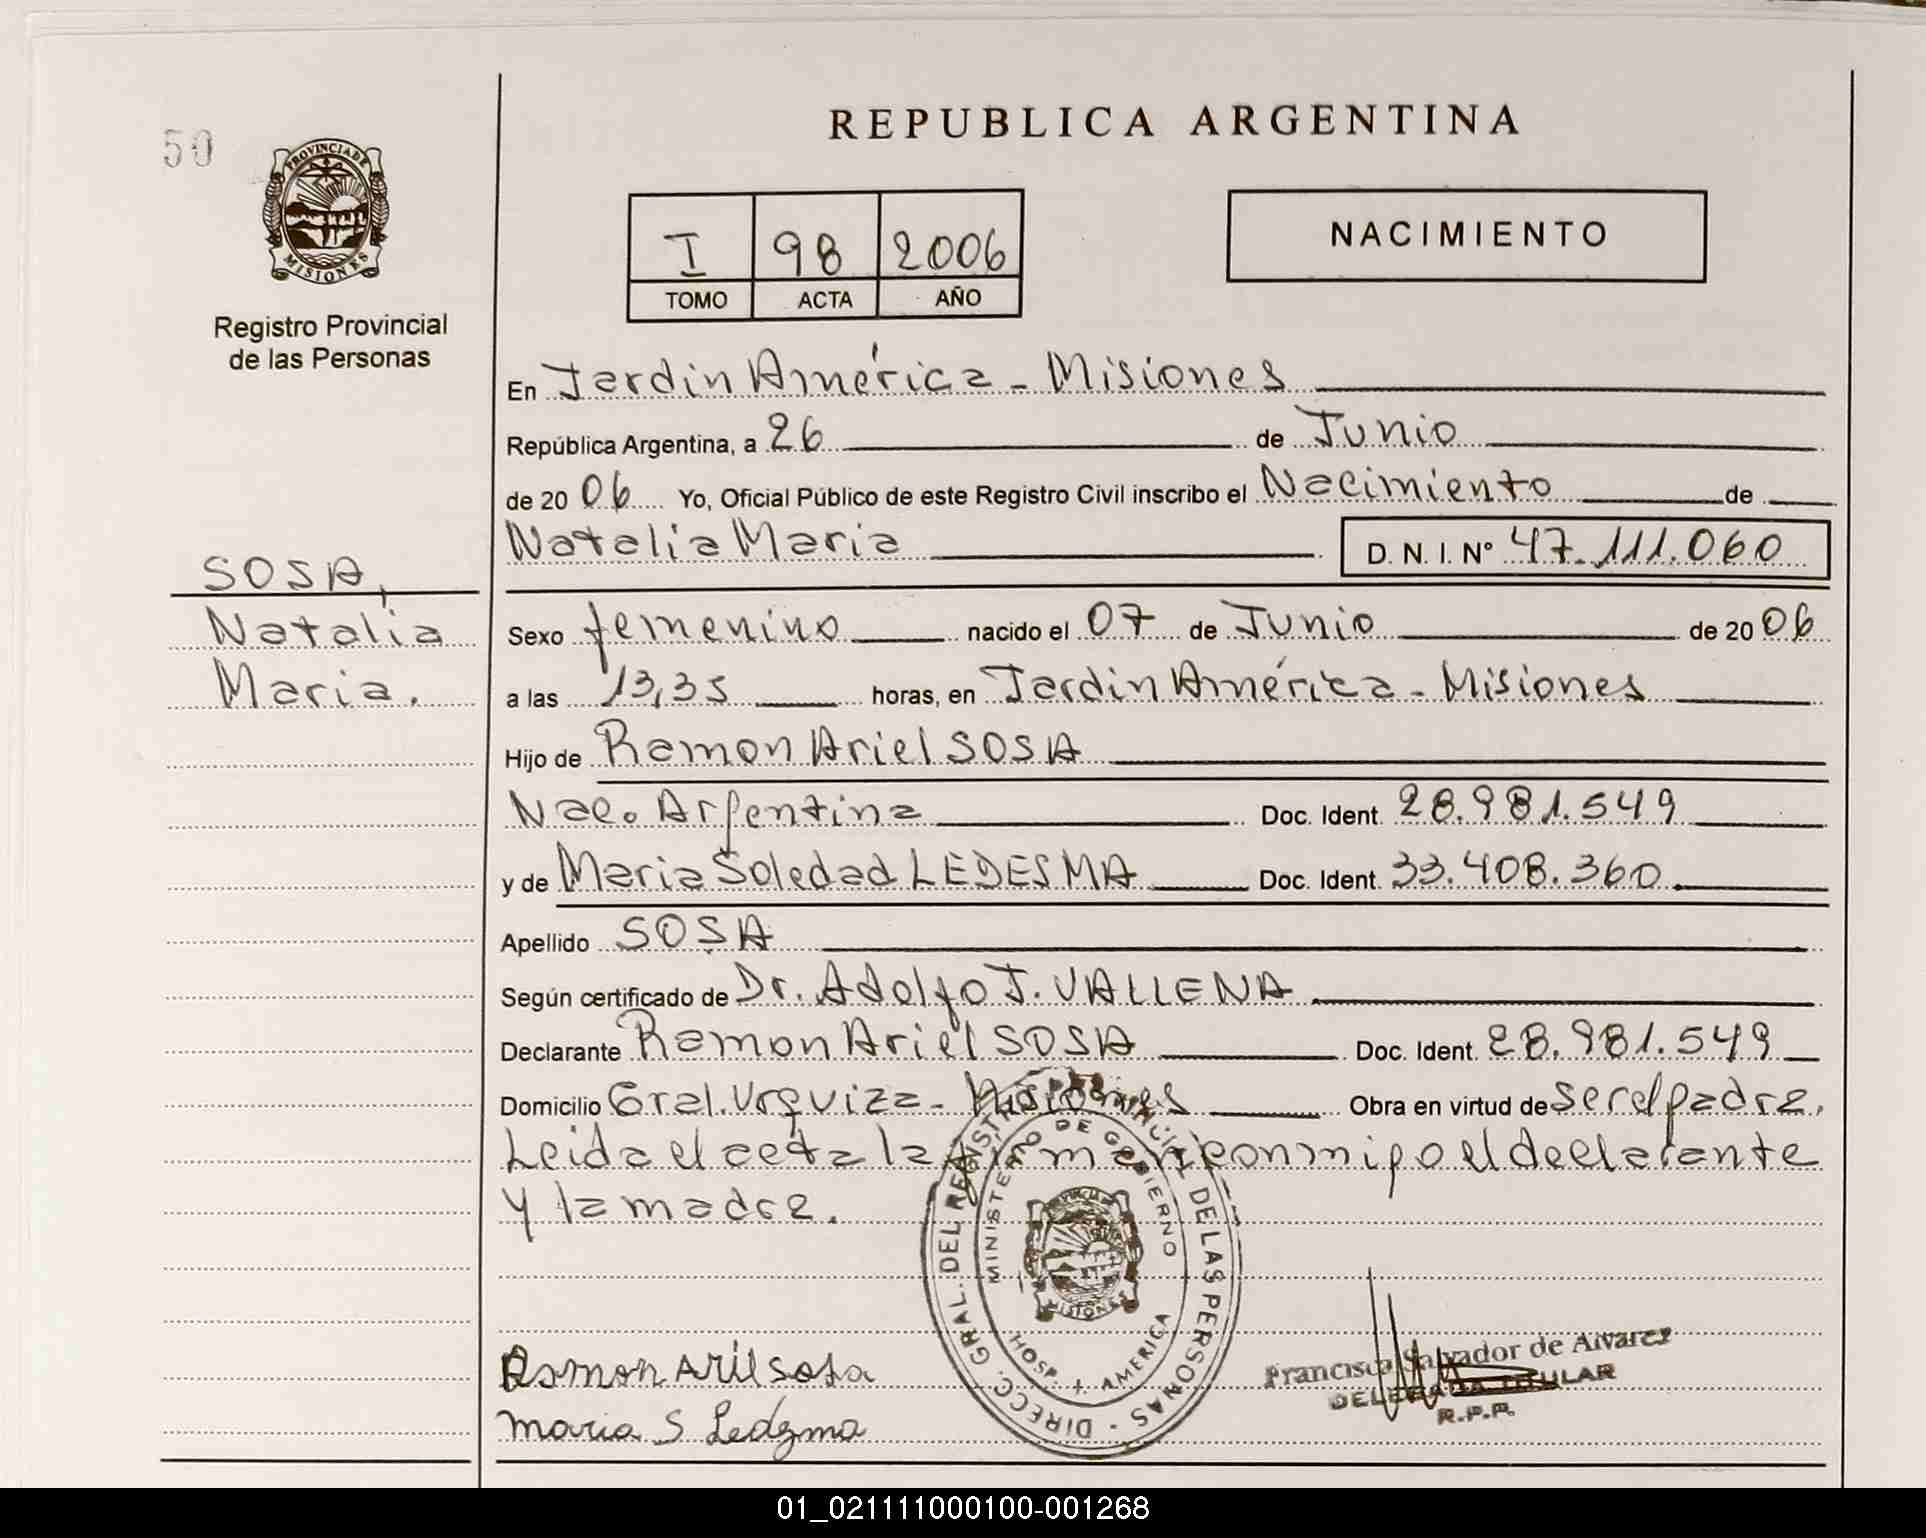 50
PROVINCIA DE
MISIONES
Registro Provincial
de las Personas
SOSA,
Natalia
Maria.
REPUBLICA ARGENTINA
I 98 2006
TOMO ACTA AÑO
NACIMIENTO
En Jardin América - Misiones
República Argentina, a 26 de Junio
de 2006 Yo, Oficial Público de este Registro Civil inscribo el Nacimiento de
Natalia Maria D. N. I. N° 47.111.060
Sexo femenino nacido el 07 de Junio de 2006
a las 13,35 horas, en Jardin América - Misiones
Hijo de Ramon Ariel SOSA
Nac. Argentina Doc. Ident. 28.981.549
y de Maria Soledad LEDESMA Doc. Ident. 33.408.360
Apellido SOSA
Según certificado de Dr. Adolfo J. VALLENA
Declarante Ramon Ariel SOSA Doc. Ident. 28.981.549
Domicilio Gral. Urquiza - Misiones Obra en virtud de ser el padre.
Leida el acta la firman conmigo el declarante
y la madre.
MINISTERIO DE GOBIERNO
HOSP. J. AMERICA
DIRECC. GRAL. DEL REGISTRO PROVINCIAL DE LAS PERSONAS
MISIONES
Ramon Ariel sosa
Maria S Ledezma
Francisca Salvador de Alvarez
DELEGADA TITULAR
R.P.P.
01_021111000100-001268